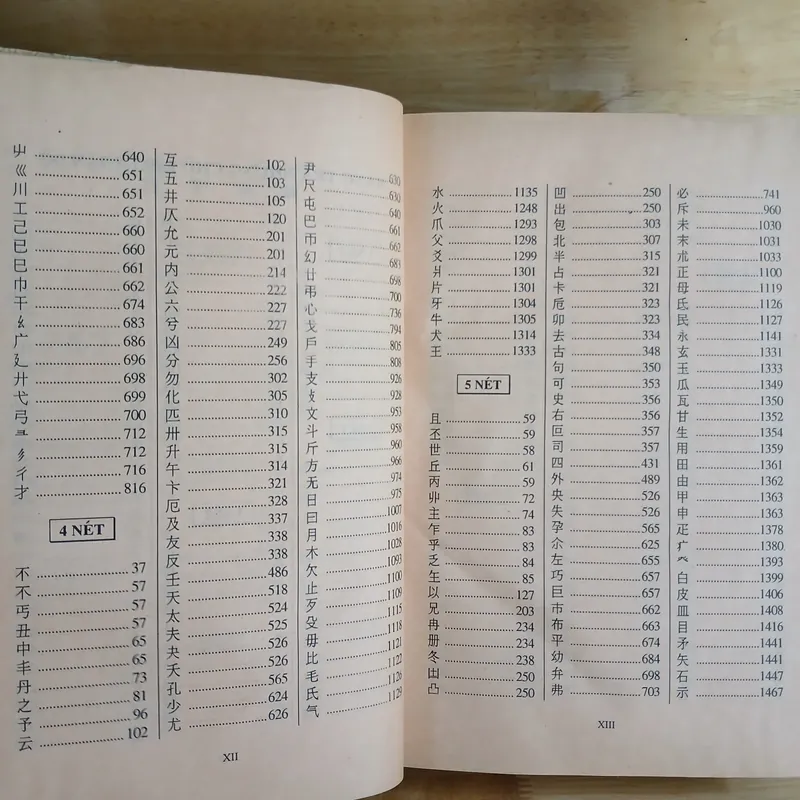 屮 640
巛 651
川 651
工 652
己 660
已 660
巳 661
巾 662
干 674
幺 683
广 686
廴 696
廾 698
弋 699
弓 700
彐 712
彡 712
彳 716
才 816
4 NÉT
不 37
不 57
丐 57
丑 57
中 65
丰 65
丹 73
之 81
予 96
云 102
互 102
五 103
井 105
仄 120
允 201
元 201
内 214
公 222
六 227
兮 227
凶 249
分 256
勿 302
化 305
匹 310
卅 315
升 315
午 314
卞 321
厄 328
及 337
友 338
反 338
壬 486
天 518
太 524
夫 525
夬 526
夭 526
孔 565
少 624
尤 626
尹 630
尺 630
屯 640
巴 661
帀 662
幻 683
廿 698
弔 700
心 736
戈 794
戶 805
手 808
支 926
攴 928
文 953
斗 958
斤 960
方 966
无 974
日 975
曰 1007
月 1016
木 1028
欠 1093
止 1100
歹 1109
殳 1115
毋 1118
比 1121
毛 1122
氏 1126
气 1129
XII
水 1135
火 1248
爪 1293
父 1298
爻 1299
爿 1301
片 1301
牙 1304
牛 1305
犬 1314
王 1333
5 NÉT
且 59
丕 59
世 58
丘 61
丙 59
丱 72
主 74
乍 83
乎 83
乏 84
以 127
兄 203
冉 234
册 234
冬 238
凸 250
凹 250
出 250
包 303
北 307
半 315
占 321
卡 321
卮 323
卯 323
去 334
古 348
句 350
可 353
史 356
右 356
叵 356
司 357
四 431
外 489
央 526
失 526
孕 565
尒 625
左 655
巧 657
巨 657
市 662
布 663
平 674
幼 684
弁 698
弗 703
必 741
斥 960
未 1030
末 1031
朮 1033
正 1100
母 1119
氐 1126
民 1127
永 1141
玄 1331
玉 1333
瓜 1349
瓦 1350
甘 1352
生 1354
用 1359
田 1361
由 1362
甲 1363
申 1363
疋 1378
疒 1380
癶 1393
白 1399
皮 1406
皿 1408
目 1416
矛 1441
矢 1441
石 1447
示 1467
XIII